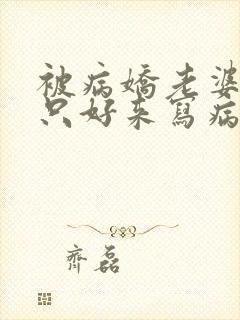 被病嬌老婆
只好來寫病
齊磊